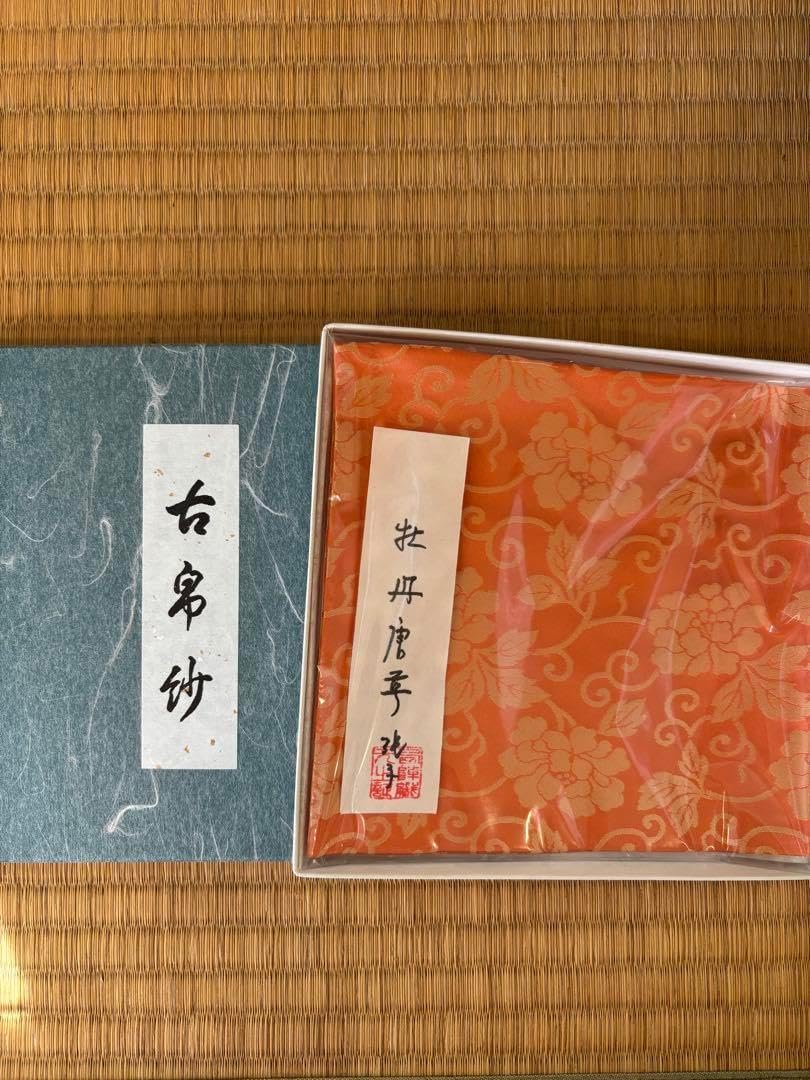 古帛紗
牡丹唐草